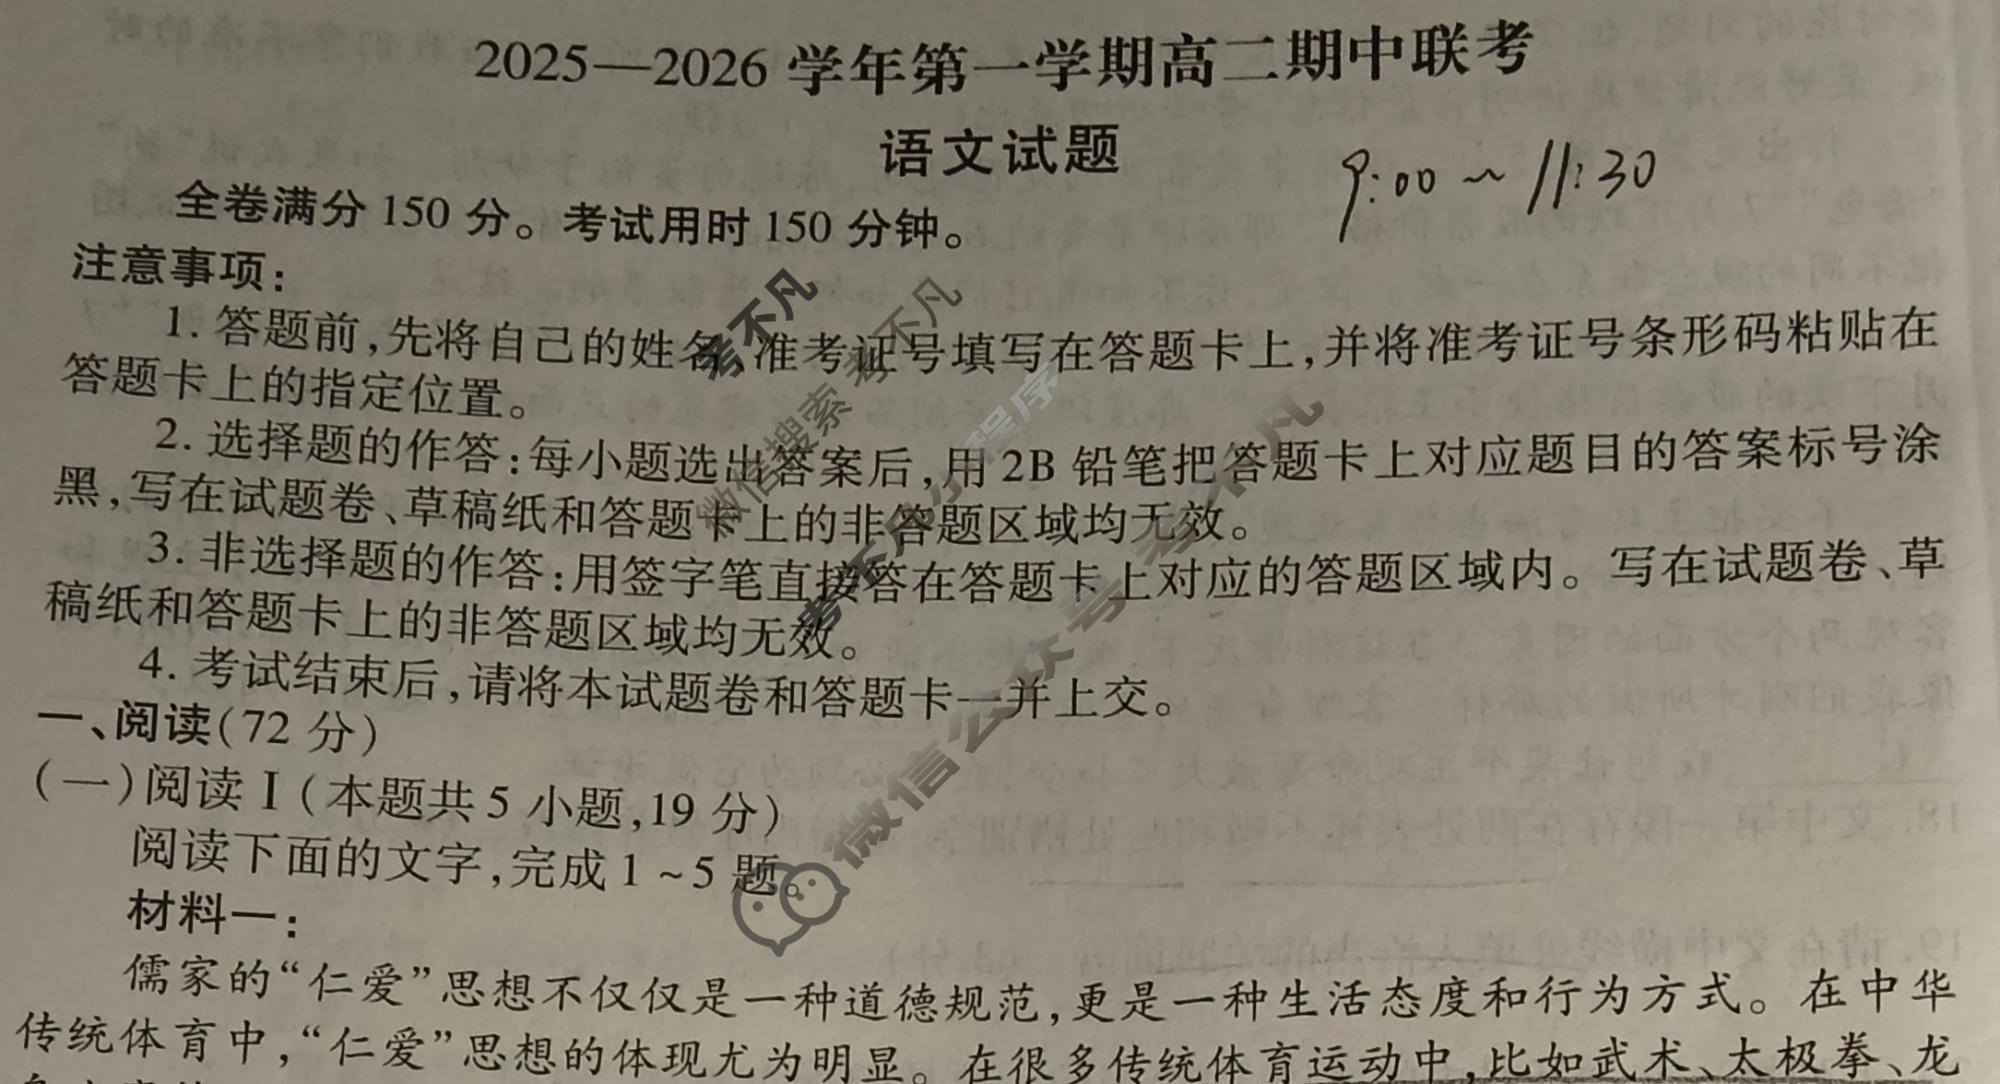 2025—2026 学年第一学期高二期中联考
语文试题
9:00 ~ 11:30
全卷满分 150 分。考试用时 150 分钟。
注意事项:
1. 答题前,先将自己的姓名、准考证号填写在答题卡上,并将准考证号条形码粘贴在
答题卡上的指定位置。
2. 选择题的作答:每小题选出答案后,用 2B 铅笔把答题卡上对应题目的答案标号涂
黑,写在试题卷、草稿纸和答题卡上的非答题区域均无效。
3. 非选择题的作答:用签字笔直接答在答题卡上对应的答题区域内。写在试题卷、草
稿纸和答题卡上的非答题区域均无效。
4. 考试结束后,请将本试题卷和答题卡一并上交。
一、阅读(72 分)
(一)阅读 I (本题共 5 小题,19 分)
阅读下面的文字,完成 1 ~ 5 题。
材料一:
儒家的“仁爱”思想不仅仅是一种道德规范,更是一种生活态度和行为方式。在中华
传统体育中,“仁爱”思想的体现尤为明显。在很多传统体育运动中,比如武术、太极拳、龙
考不凡
微信搜索 考不凡
考不凡小程序
微信公众号 考不凡